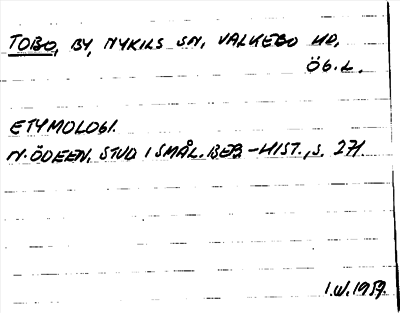 TOBO, BY, NYKILS SN, VALKEBO HD,
ÖG.L.
ETYMOLOGI.
N. ÖDEEN, STUD I SMÅL. BEB-HIST., S. 271.
I.W. 1959.